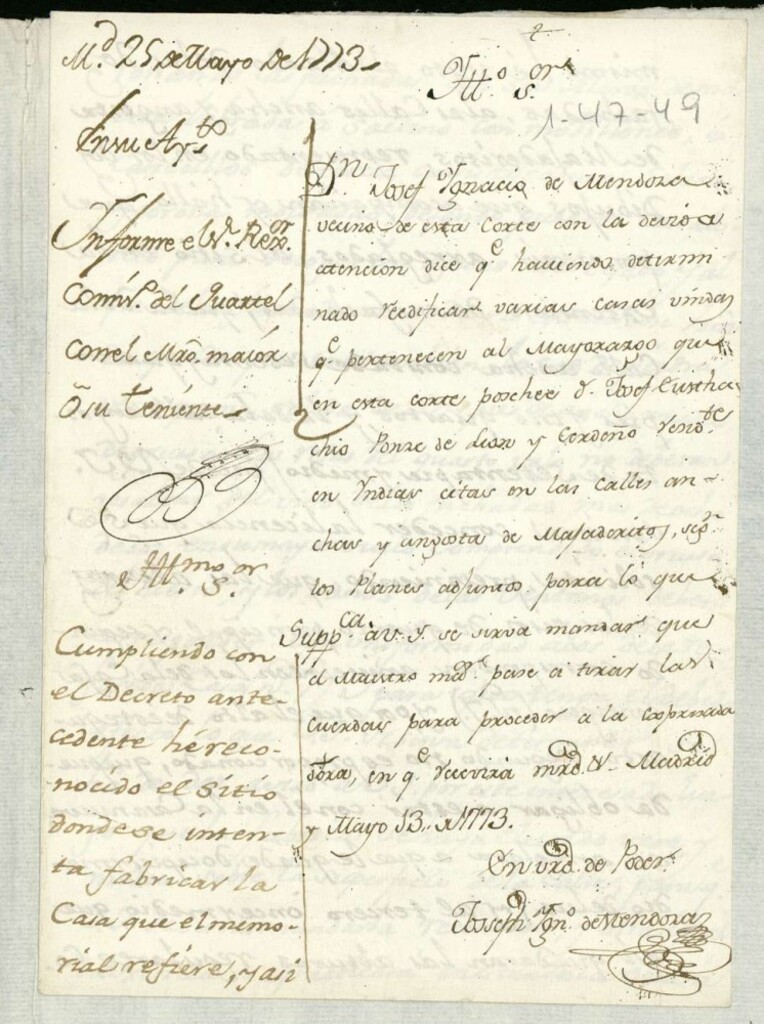 M.d 25 de Mayo de 1773
Yll.o S.or
1-47-49
En su Ay.to
Ynforme el S.r Rex.or
Comis.o del Quartel
con el Mro. maior
ô su teniente
D.n Josef Ygnacio de Mendoza
vecino de esta Corte con la devida
atencion dice q.e haviendo determi
nado reedificar varias casas vindas
q.e pertenecen al Mayorazgo que
en esta corte poshee D. Josef Eusta
chio Ponze de Leon y Cerdeño resid.te
en Yndias citas en las calles an-
chas y angosta de Majaderitos, seg.n
los Planes adjuntos para lo que
Supp.ca a V. Y. se sirva mandar que
el Maestro m.or pase a tirar las
cuerdas para proceder a la expresada
obra, en q.e recivirà mrd. Madrid
y Mayo 13 1773.
En vrd. de Poder
Joseph Ygn.o de Mendoza
Yll.mo S.or
Cumpliendo con
el Decreto ante-
cedente hé reco-
nocido el sitio
donde se inten-
ta fabricar la
Casa que el memo-
rial refiere, y asi